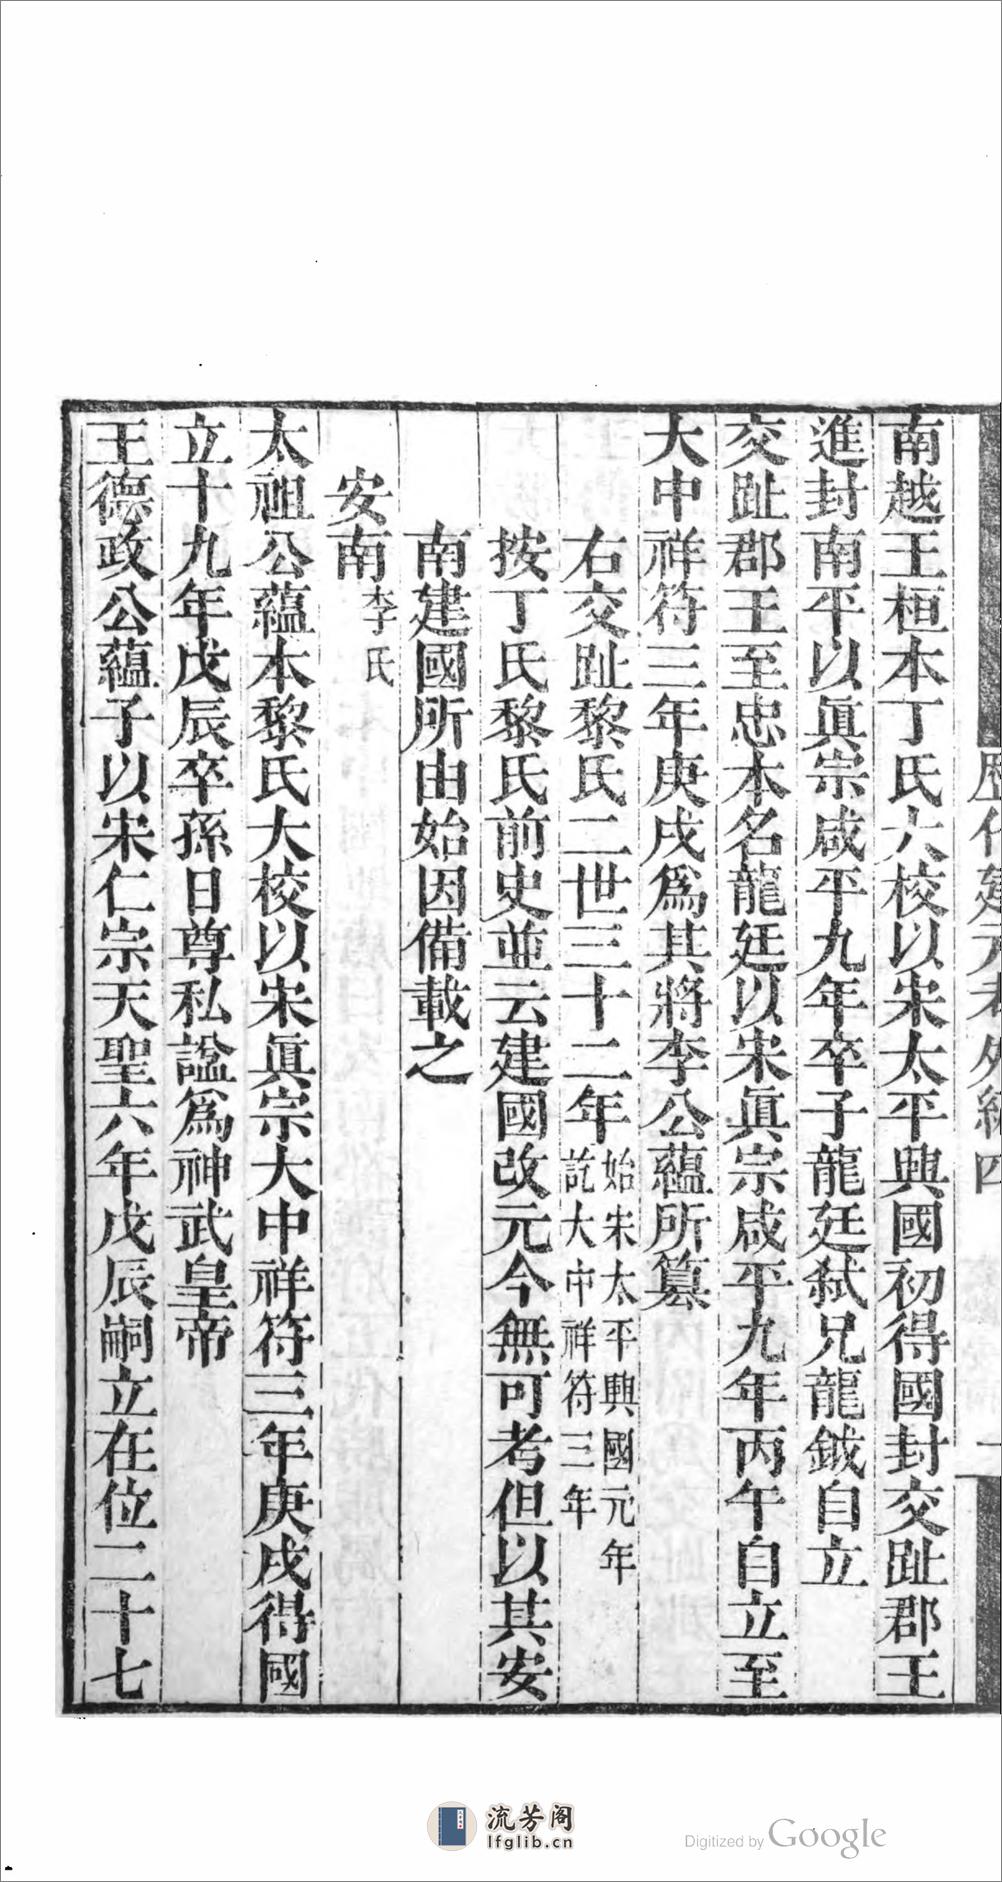 歷代建元考外編四
南越王桓本丁氏大校以宋太平興國初得國封交趾郡王
進封南平以眞宗咸平九年卒子龍廷弑兄龍鉞自立
交趾郡王至忠本名龍廷以宋眞宗咸平九年丙午自立至
大中祥符三年庚戌爲其將李公蘊所篡
右交趾黎氏二世三十二年始宋太平興國元年訖大中祥符三年
按丁氏黎氏前史並云建國改元今無可考但以其安
南建國所由始因備載之
安南李氏
太祖公蘊本黎氏大校以宋眞宗大中祥符三年庚戌得國
立十九年戊辰卒孫日尊私諡爲神武皇帝
王德政公蘊子以宋仁宗天聖六年戊辰嗣立在位二十七
流芳阁
lfglib.cn
Digitized by Google